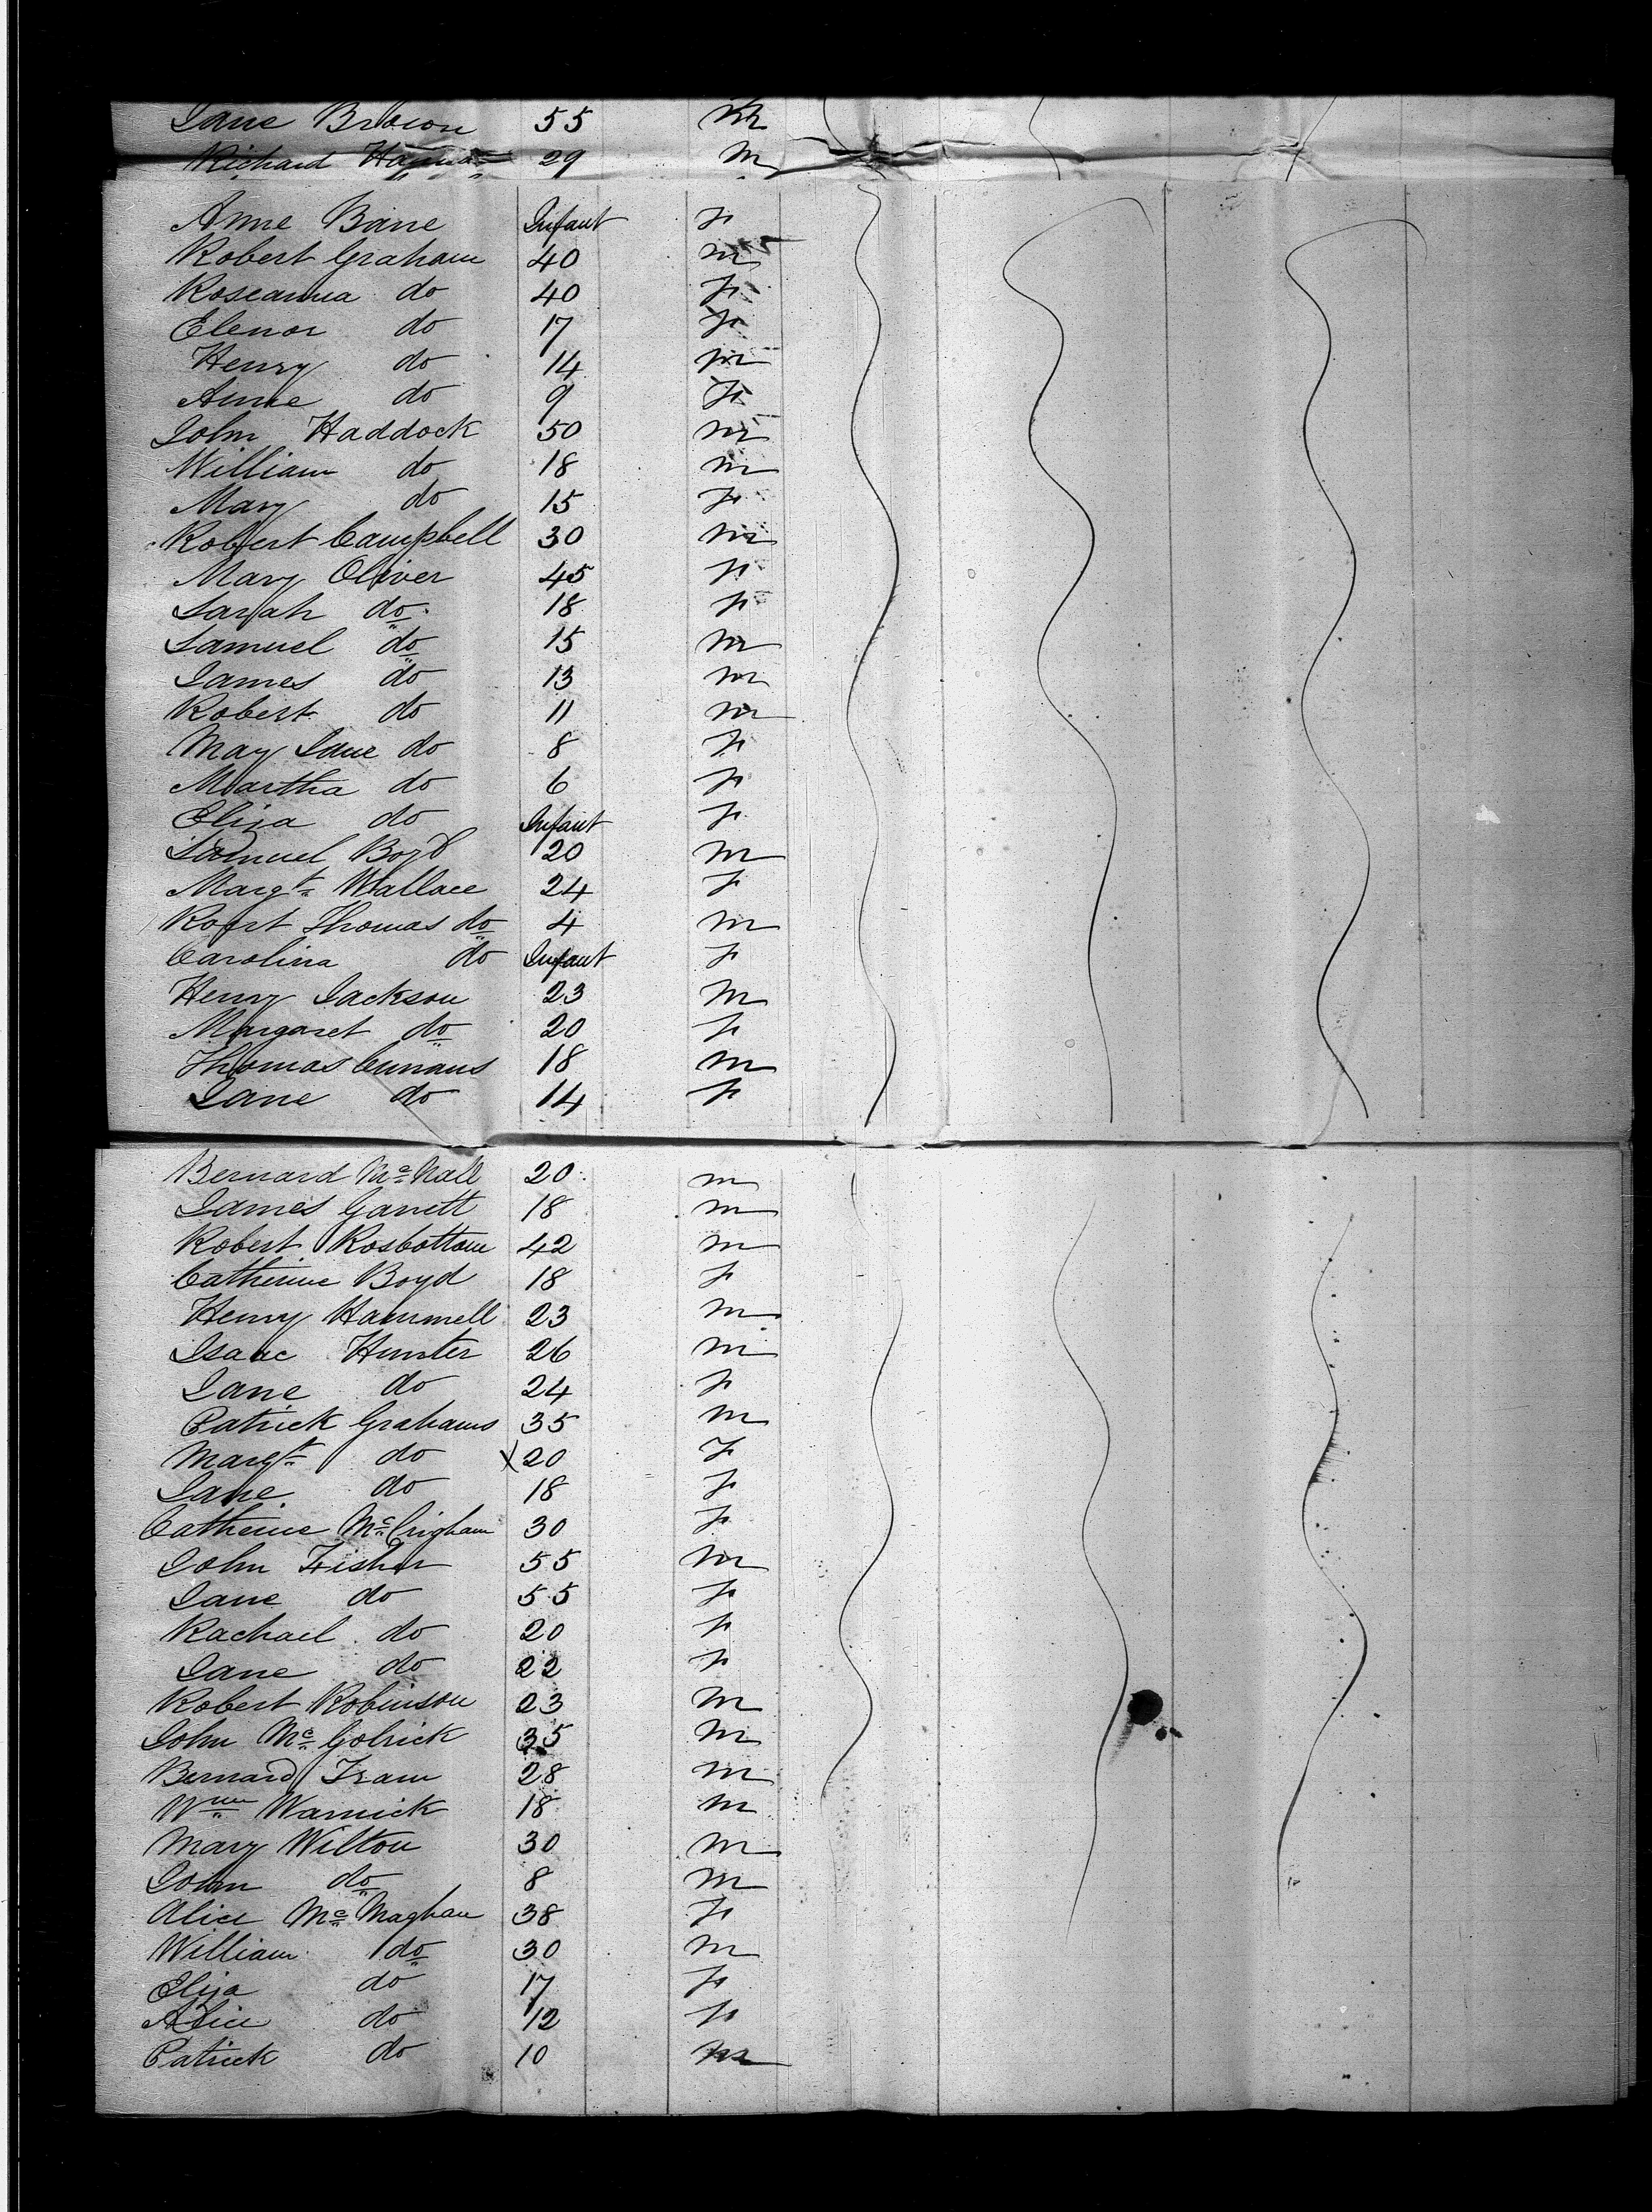 Jane Brown 55 m
Richard Hanna 29 m
Anne Bane Infant f
Robert Graham 40 m
Roseanna do 40 f
Elenor do 17 f
Henry do 14 m
Anne do 9 f
John Haddock 50 m
William do 18 m
Mary do 15 f
Robert Campbell 30 m
Mary Oliver 45 f
Sarah do 18 f
Samuel do 15 m
James do 13 m
Robert do 11 m
May Jane do 8 f
Martha do 6 f
Eliza do Infant f
Samuel Boyd 20 m
Margt Wallace 24 f
Robert Thomas do 4 m
Carolina do Infant f
Henry Jackson 23 m
Margaret do 20 f
Thomas 18 m
Jane do 14 f
Bernard Mc Nall 20 m
James Garrett 18 m
Robert Rosbottom 42 m
Catherine Boyd 18 f
Henry Hammell 23 m
Isaac Hunter 26 m
Jane do 24 f
Patrick Grahams 35 m
Margt do X 20 F
Jane do 18 f
Catherine Mc 30 f
John Fisher 55 m
Jane do 55 f
Rachael do 20 f
Jane do 22 f
Robert Robinson 23 m
John Mc Golrick 35 m
Bernard 28 m
Wm Warnick 18 m
Mary Wilton 30 m
John do 8 m
Alice Mc Maghan 38 f
William do 30 m
Eliza do 17 f
Alice do 12 f
Patrick do 10 m